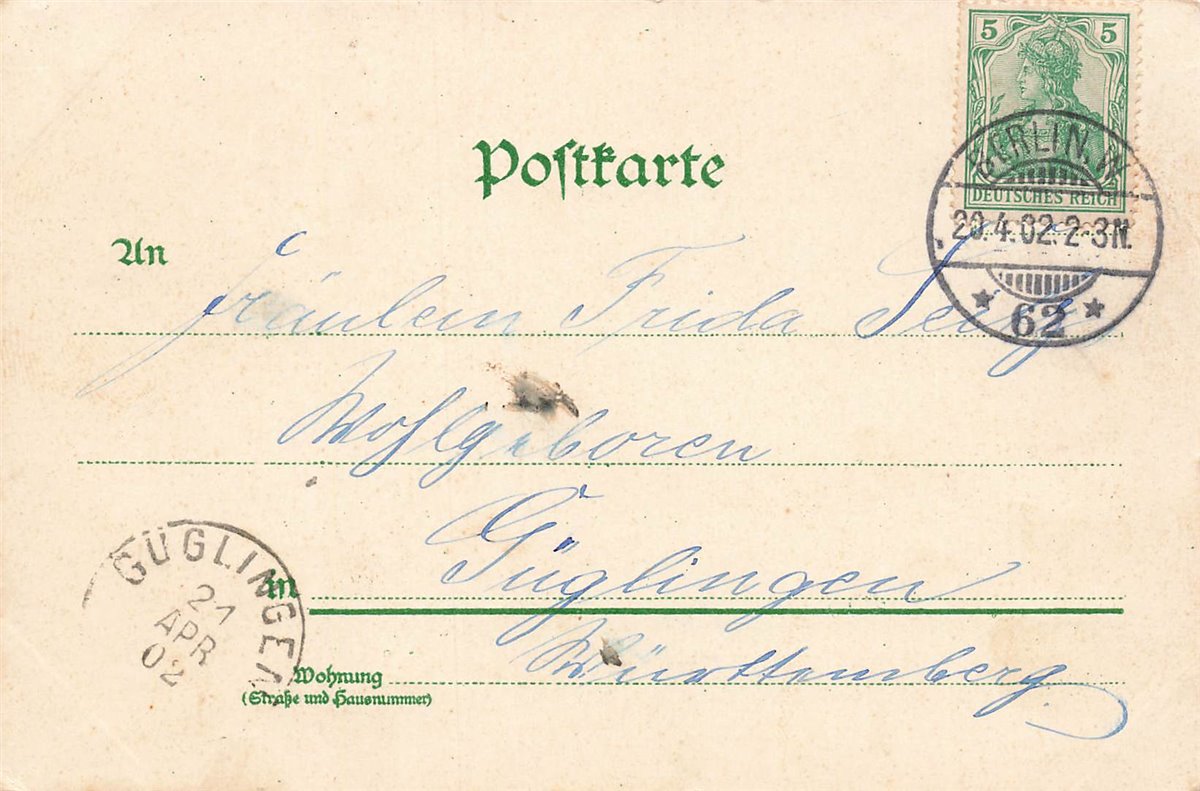 5 5
DEUTSCHES REICH
BERLIN. W.
20.4.02.2-3N.
* 62 *
Postkarte
An
Fräulein Frida
Wohlgeboren
in Güglingen
Württemberg
Wohnung
(Straße und Hausnummer)
GÜGLINGEN
21
APR
02